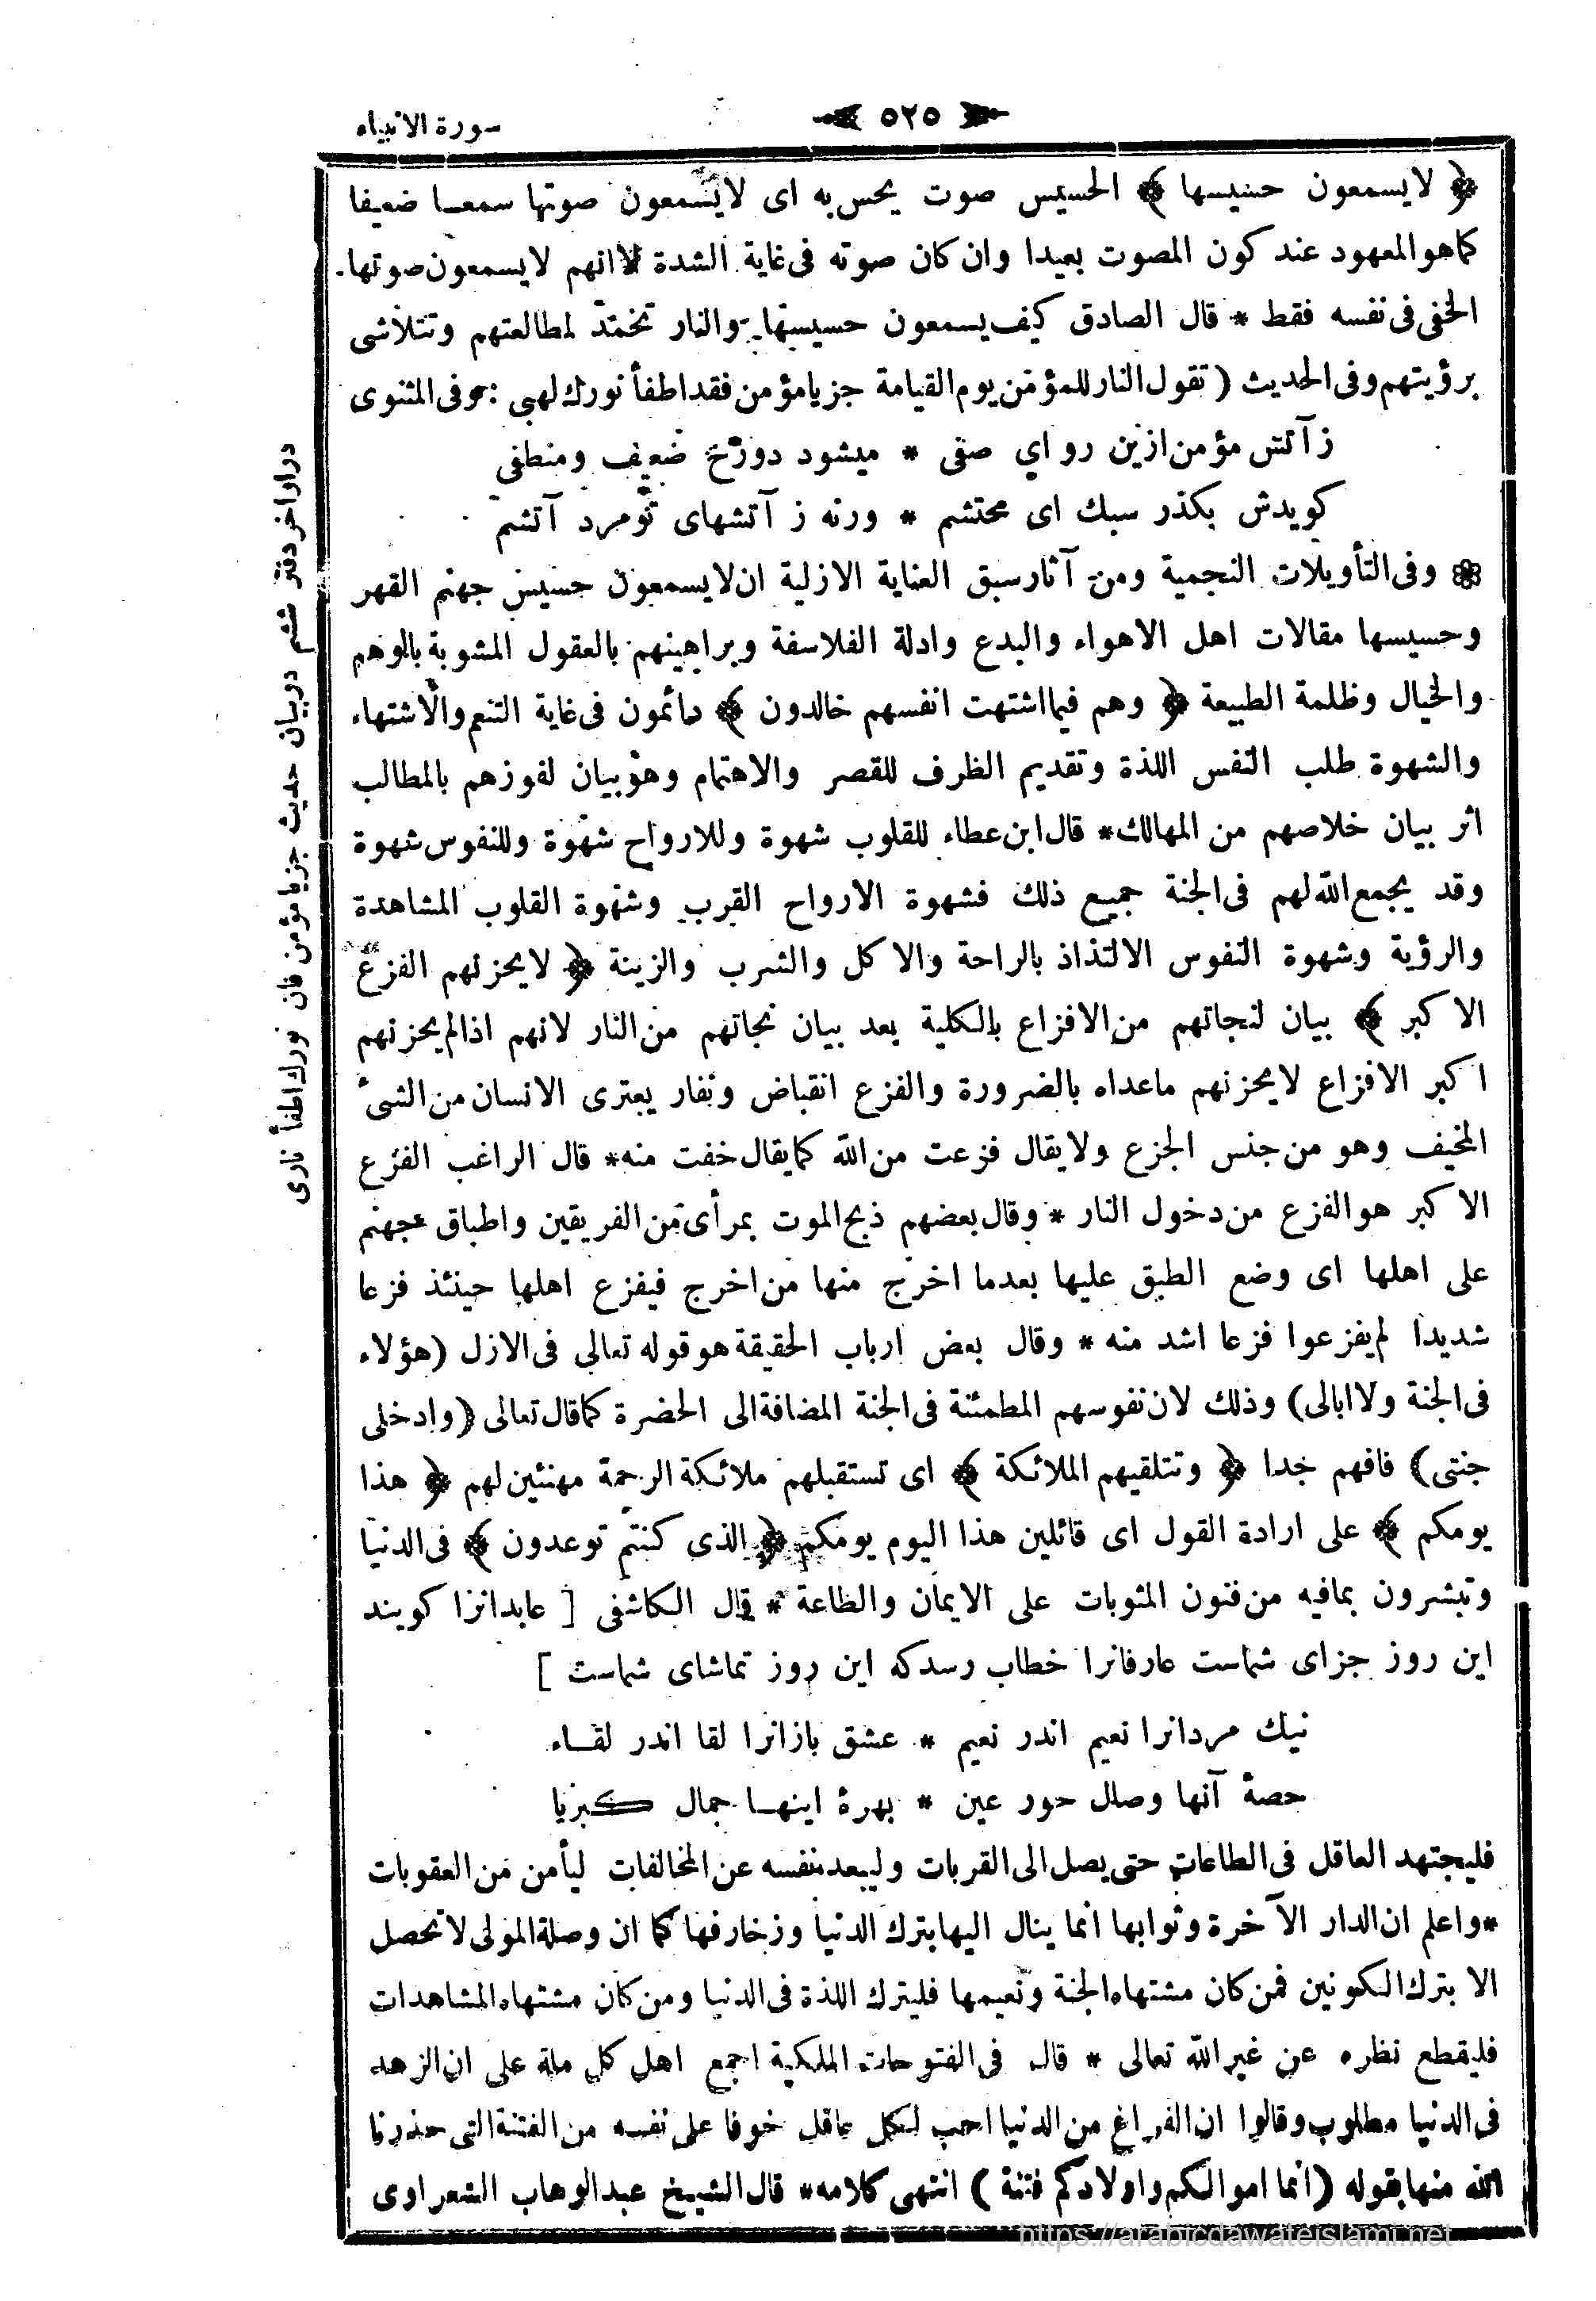 سورة الانبياء
٥٢٥
﴿ لا يسمعون حسيسها ﴾ الحسيس صوت يحس به اى لا يسمعون صوتها سمعا ضعيفا
كما هو المعهود عند كون المصوت بعيدا وان كان صوته فى غاية الشدة لا انهم لا يسمعون صوتها
الخفى فى نفسه فقط * قال الصادق كيف يسمعون حسيسها والنار تخمد لمطالعتهم وتتلاشى
برؤيتهم وفى الحديث ( تقول النار للمؤمن يوم القيامة جز يا مؤمن فقد اطفأ نورك لهبى : وفى المثنوى
ز آتش مؤمن ازين رو اي صفى * ميشود دوزخ ضعيف ومنطفى
كويدش بكذر سبك اى محتشم * ورنه ز آتشهاى تو مرد آتشم
وفى التأويلات النجمية ومن آثار سبق العناية الازلية ان لا يسمعون حسيس جهنم القهر
وحسيسها مقالات اهل الاهواء والبدع وادلة الفلاسفة وبراهينهم بالعقول المشوبة بالوهم
والخيال وظلمة الطبيعة ﴿ وهم فيما اشتهت انفسهم خالدون ﴾ دائمون فى غاية التنعم والاشتهاء
والشهوة طلب النفس اللذة وتقديم الظرف للقصر والاهتمام وهو بيان لفوزهم بالمطالب
اثر بيان خلاصهم من المهالك * قال ابن عطاء للقلوب شهوة وللارواح شهوة وللنفوس شهوة
وقد يجمع الله لهم فى الجنة جميع ذلك فشهوة الارواح القرب وشهوة القلوب المشاهدة
والرؤية وشهوة النفوس الالتذاذ بالراحة والاكل والشرب والزينة ﴿ لا يحزنهم الفزع
الاكبر ﴾ بيان لنجاتهم من الافزاع بالكلية بعد بيان نجاتهم من النار لانهم اذا لم يحزنهم
اكبر الافزاع لا يحزنهم ماعداه بالضرورة والفزع انقباض ونفار يعترى الانسان من الشئ
المخيف وهو من جنس الجزع ولا يقال فزعت من الله كما يقال خفت منه * قال الراغب الفزع
الاكبر هو الفزع من دخول النار * وقال بعضهم ذبح الموت بمرأى من الفريقين واطباق جهنم
على اهلها اى وضع الطبق عليها بعدما اخرج منها من اخرج فيفزع اهلها حينئذ فزعا
شديدا لم يفزعوا فزعا اشد منه * وقال بعض ارباب الحقيقة هو قوله تعالى فى الازل ( هؤلاء
فى الجنة ولا ابالى ) وذلك لان نفوسهم المطمئنة فى الجنة المضافة الى الحضرة كما قال تعالى ( وادخلى
جنتى ) فافهم جدا ﴿ وتتلقيهم الملائكة ﴾ اى تستقبلهم ملائكة الرحمة مهنئين لهم ﴿ هذا
يومكم ﴾ على ارادة القول اى قائلين هذا اليوم يومكم ﴿ الذى كنتم توعدون ﴾ فى الدنيا
وتبشرون بما فيه من فنون المثوبات على الايمان والطاعة * قال الكاشفى [ عابدانرا كويند
اين روز جزاى شماست عارفانرا خطاب رسدكه اين روز تماشاى شماست ]
نيك مردانرا نعيم اندر نعيم * عشق بازانرا لقا اندر لقاء
حصۀ آنها وصال حور عين * بهرۀ اينها جمال كبريا
فليجتهد العاقل فى الطاعات حتى يصل الى القربات وليبعد نفسه عن المخالفات ليأمن من العقوبات
* واعلم ان الدار الآخرة وثوابها انما ينال اليها بترك الدنيا وزخارفها كما ان وصلة المولى لا تحصل
الا بترك الكونين فمن كان مشتهاه الجنة ونعيمها فليترك اللذة فى الدنيا ومن كان مشتهاه المشاهدات
فليقطع نظره عن غير الله تعالى * قال فى الفتوحات المكية اجمع اهل كل ملة على ان الزهد
فى الدنيا مطلوب وقالوا ان الفراغ من الدنيا احب لكل عاقل خوفا على نفسه من الفتنة التى حذرنا
الله منها بقوله ( انما اموالكم واولادكم فتنة ) انتهى كلامه * قال الشيخ عبد الوهاب الشعراوى
در اواخر دفتر ششم دربيان حديث جز يا مؤمن فان نورك اطفأ نارى
https://arabicdawateislami.net